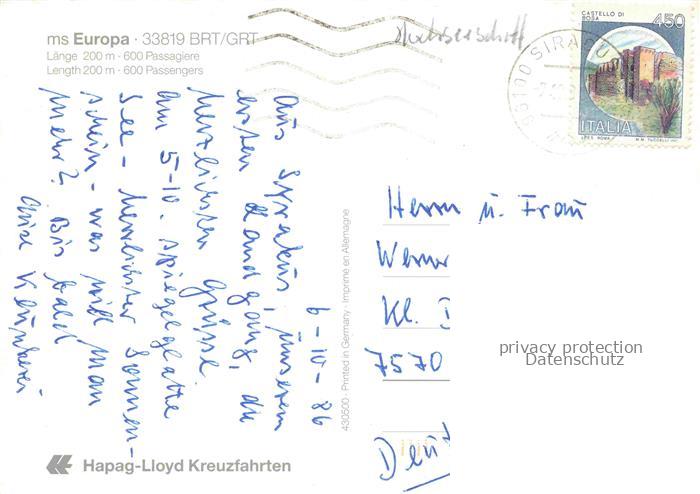 ms Europa · 33819 BRT/GRT
Länge 200 m - 600 Passagiere
Length 200 m - 600 Passengers
CASTELLO DI ROSA
450
ITALIA
I.P.Z.S. ROMA
96100 SIRACU
6-10-86
Aus Syrakus, unserem
ersten Landgang, die
herzlichsten Grüsse
Am 5-10. spiegelglatte
See - herrlichster Sonnen-
schein - was will man
mehr? Bis bald
430500 · Printed in Germany · Imprimé en Allemagne
Herrn u. Frau
Werner
Kl.
7570
Deut
privacy protection
Datenschutz
Hapag-Lloyd Kreuzfahrten